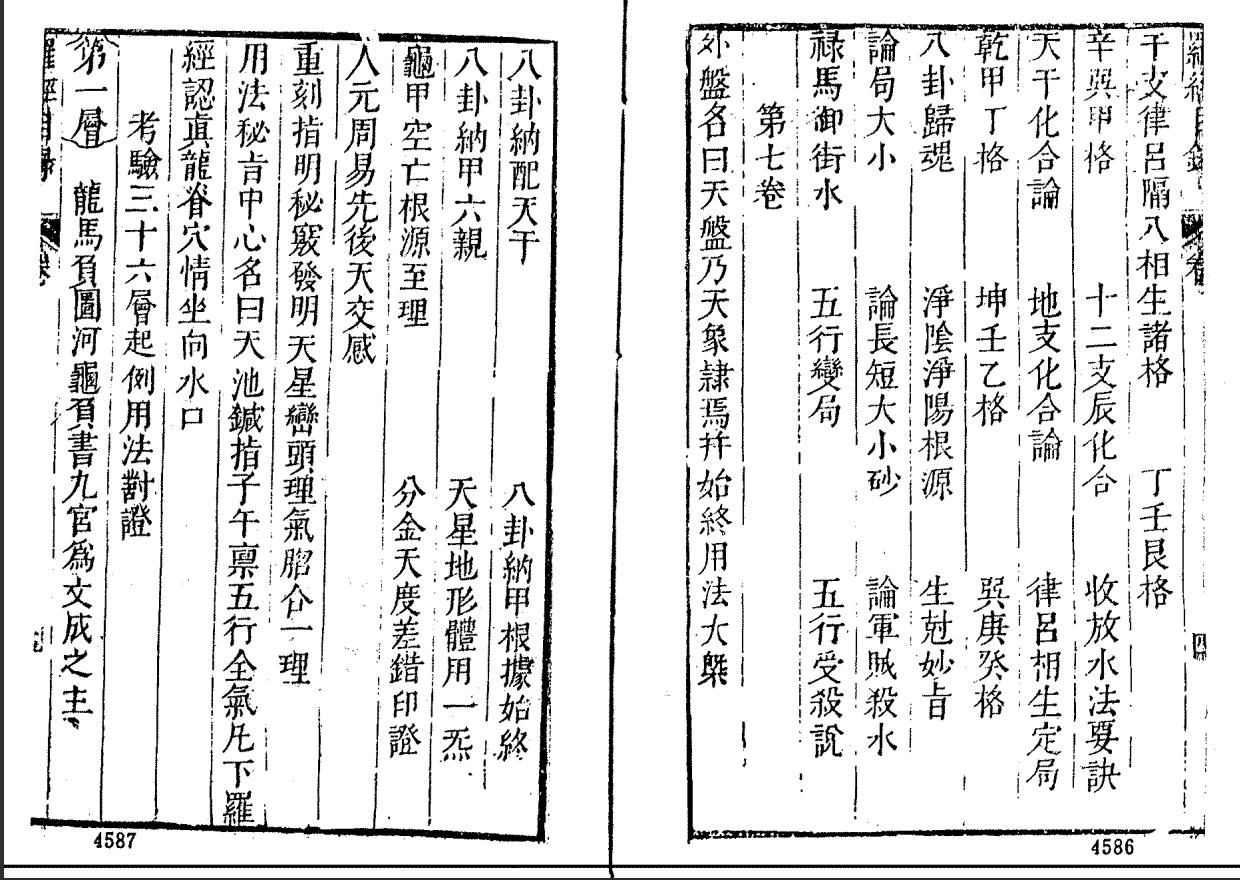 干支律呂隔八相生諸格 丁壬艮格
辛巽甲格 十二支辰化合 收放水法要訣
天干化合論 地支化合論 律呂相生定局
乾甲丁格 坤壬乙格 巽庚癸格
八卦歸魂 淨陰淨陽根源 生尅妙旨
論局大小 論長短大小砂 論軍賊殺水
祿馬御街水 五行變局 五行受殺說
第七卷
外盤名曰天盤乃天象隷焉幷始終用法大槩
4586
八卦納配天干 八卦納甲根據始終
八卦納甲六親 天星地形體用一炁
龜甲空亡根源至理 分金天度差錯印證
人元周易先後天交感
重刻指明秘竅發明天星巒頭理氣脗合一理
用法秘旨中心名曰天池鍼指子午禀五行全氣凡下羅
經認眞龍脊穴情坐向水口
考驗三十六層起例用法對證
第一層 龍馬負圖河龜負書九宮爲文成之主
4587